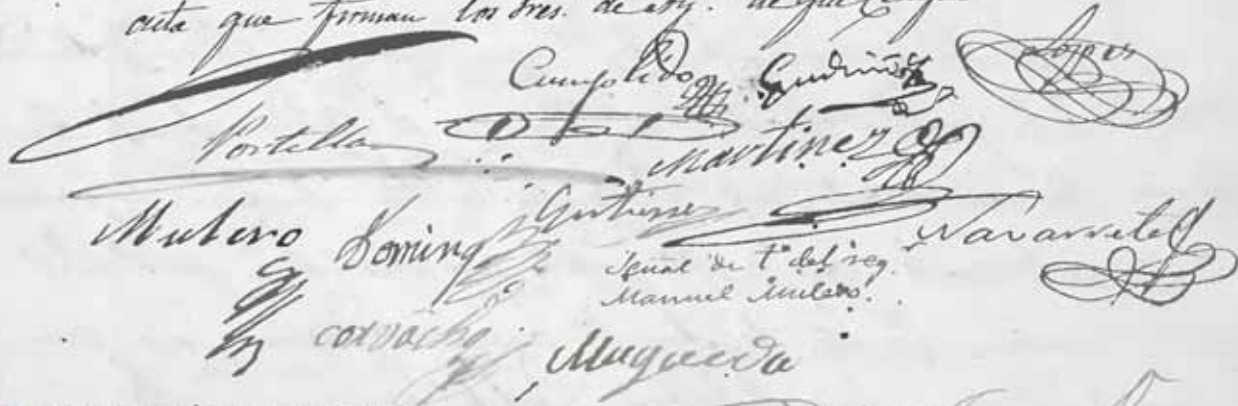 acta que firman los Sres. de ay. de que
Cumplido
López
Portilla
Martinez
Mulero
Doming
Gutierrez
Navarrete
Señal de + del reg.
Manuel Mulero.
Corvacho
Muqueda